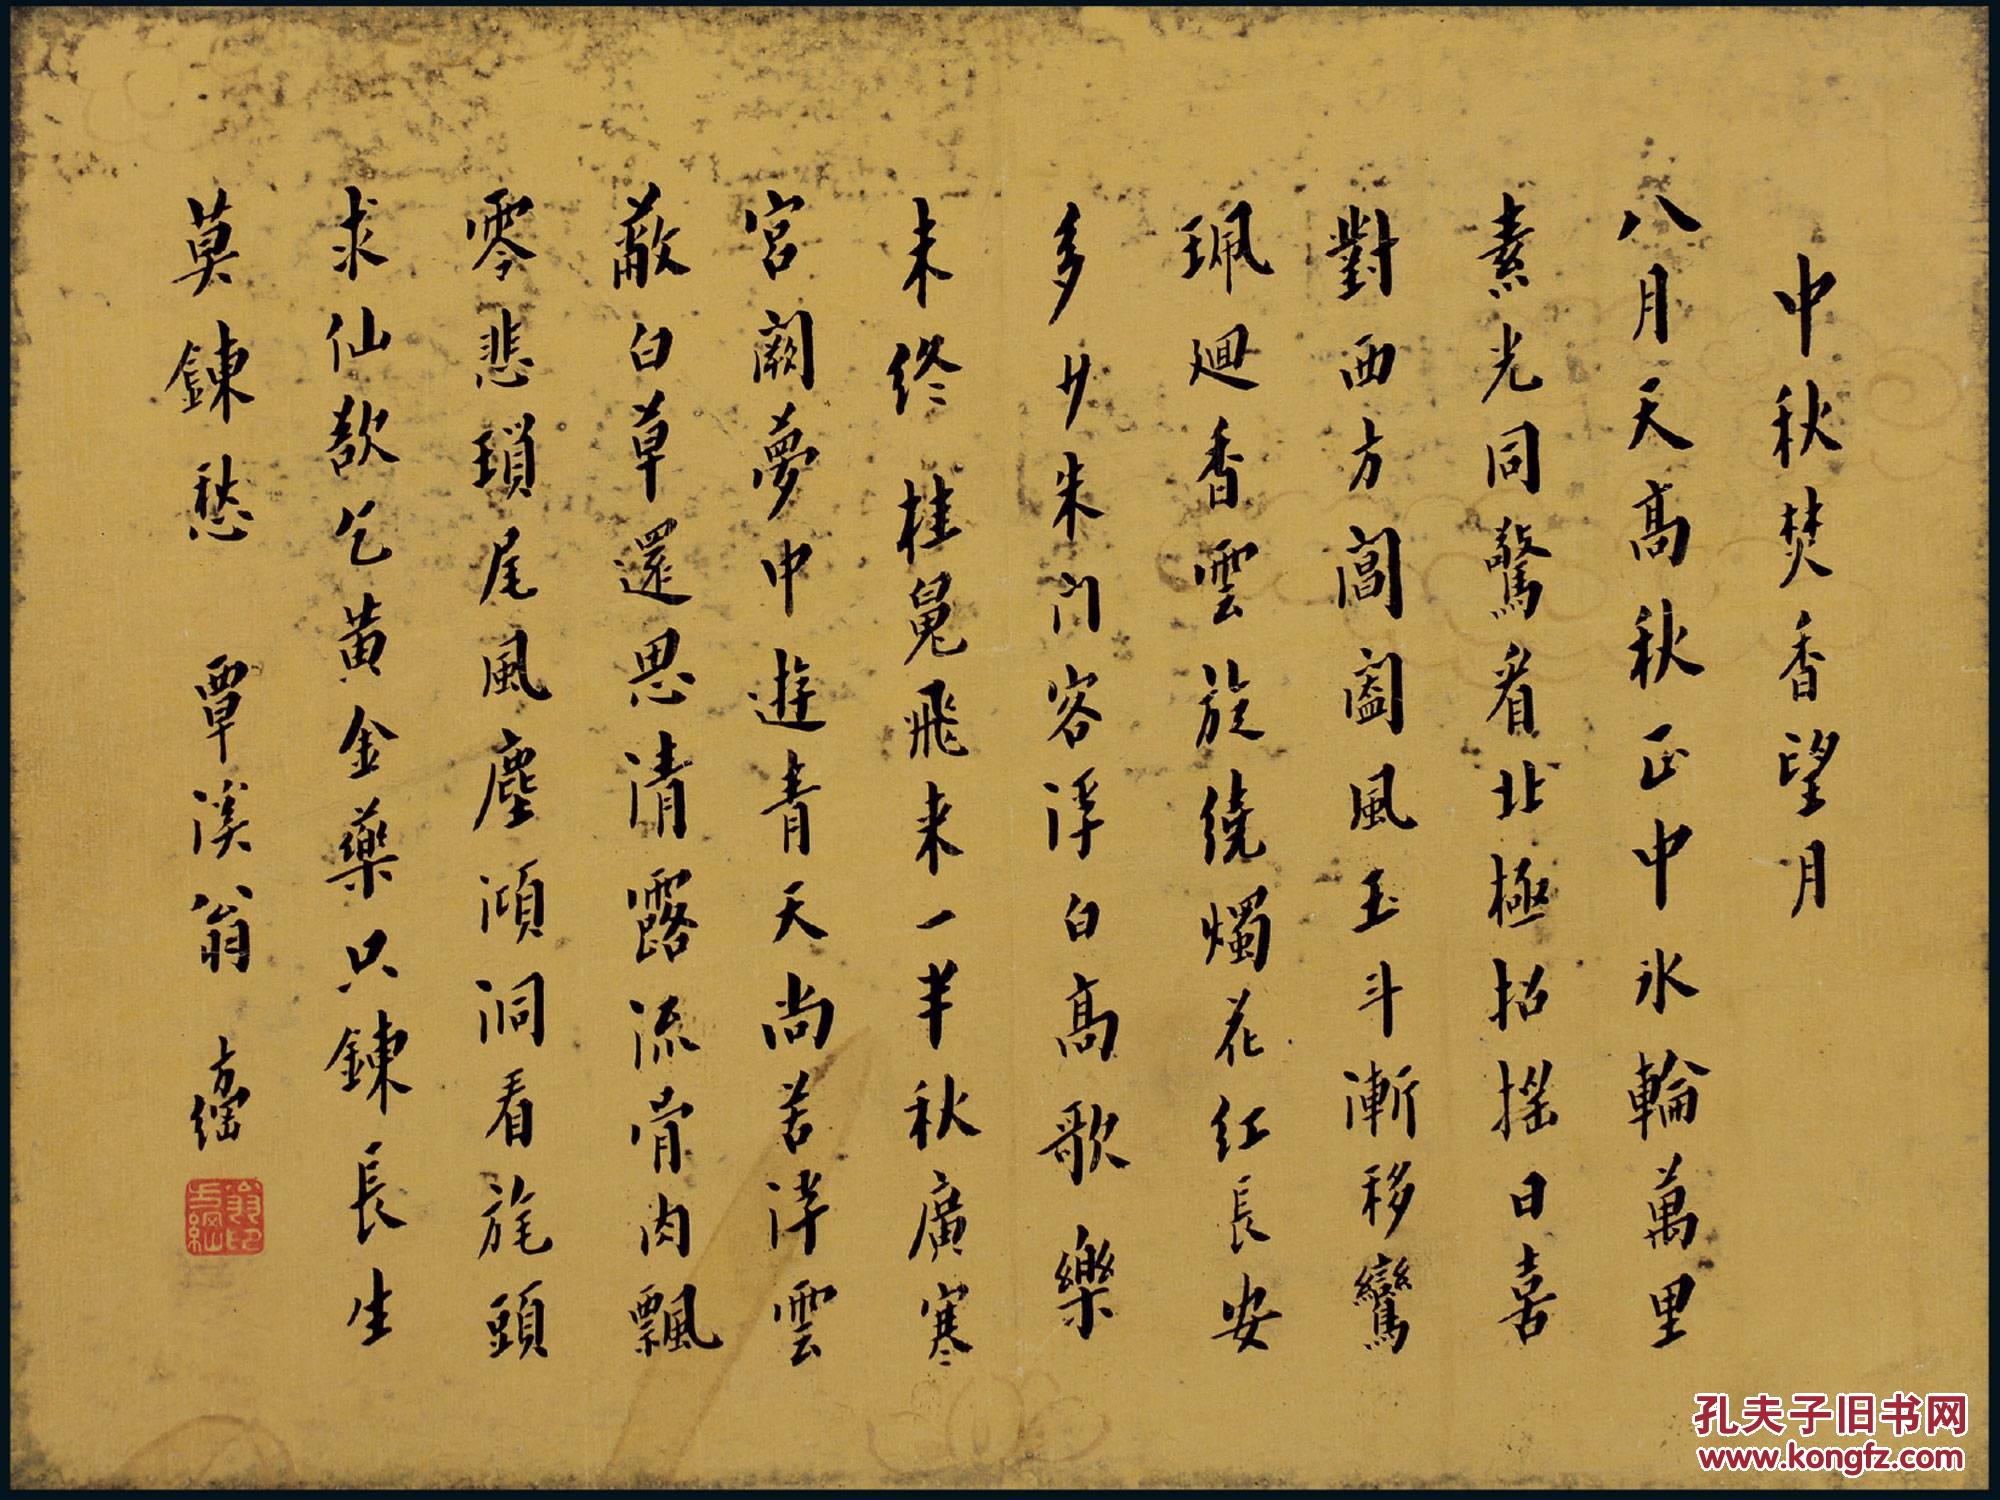 中秋焚香望月
八月天高秋正中氷輪萬里
素光同驚看北極招摇日喜
對西方閶闔風玉斗漸移鸞
珮迴香雲旋繞燭花紅長安
多少朱門客浮白高歌樂
未終桂兔飛来一半秋廣寒
宮闕夢中遊青天尚苦浮雲
蔽白草還思清露流骨肉飄
零悲瑣尾風塵澒洞看旄頭
求仙欲乞黄金藥只鍊長生
莫鍊愁 覃溪翁方綱
翁方綱印
孔夫子旧书网
www.kongfz.com